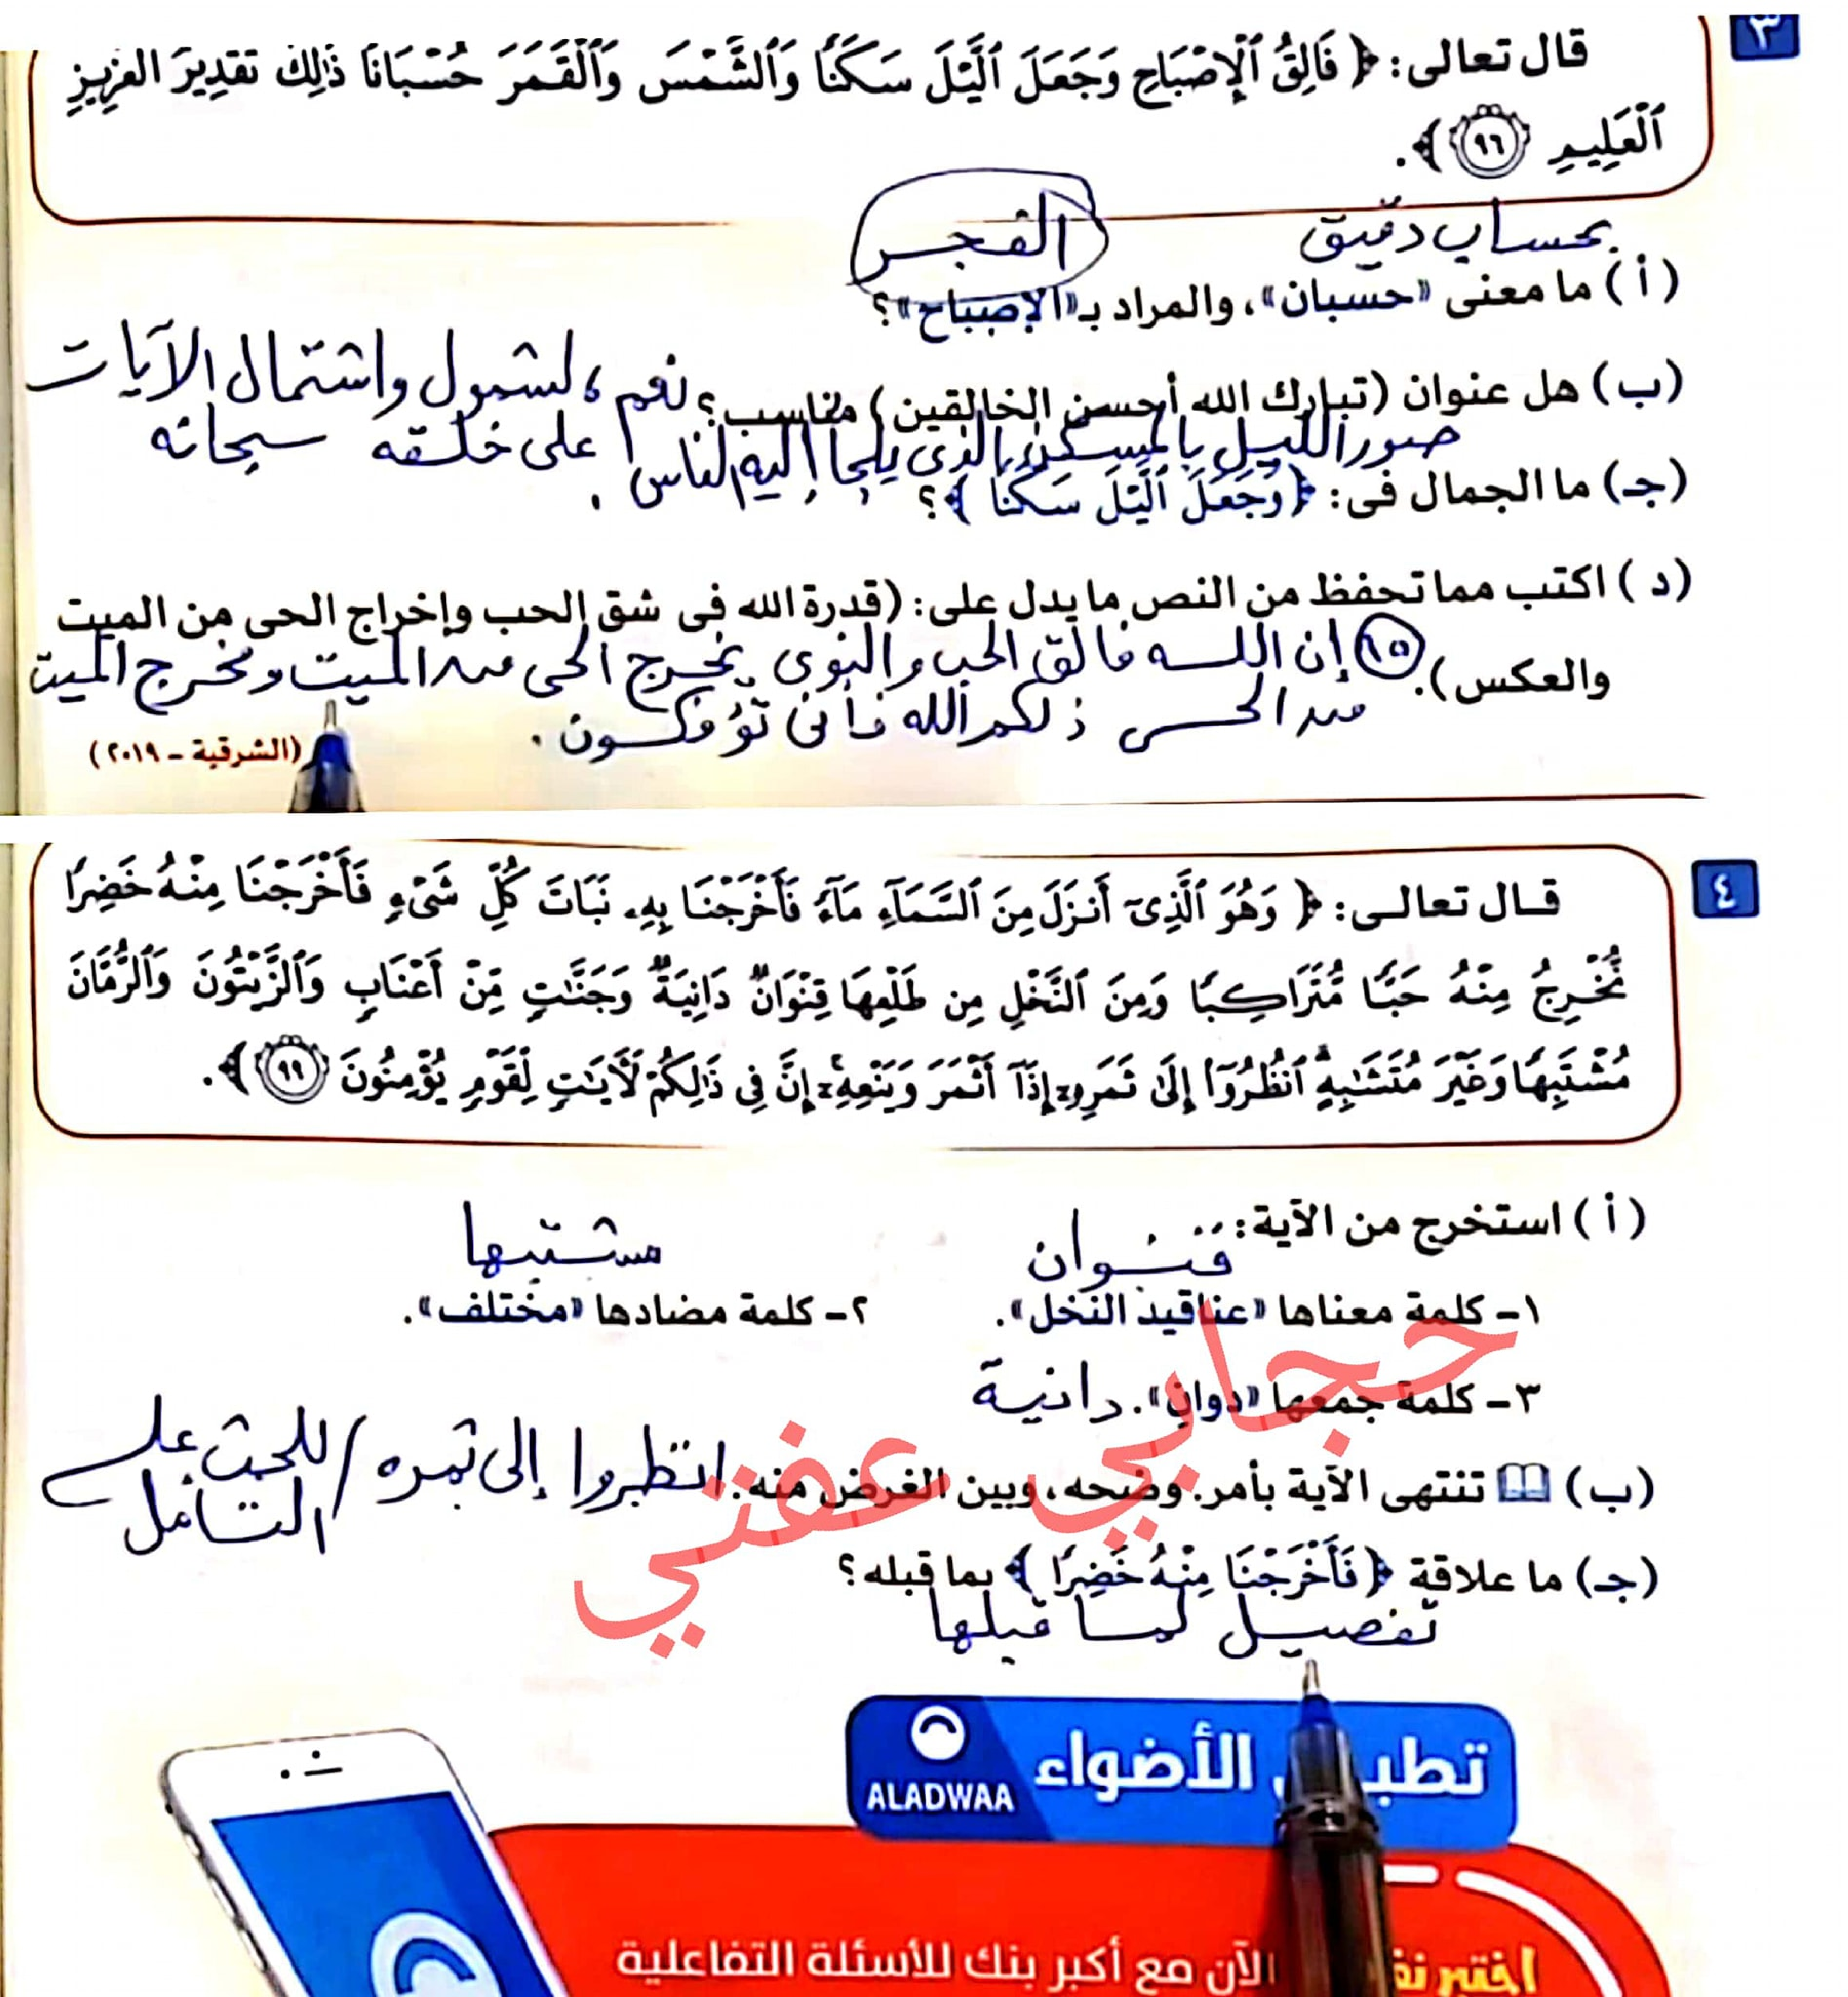 ٣
قال تعالى: ﴿ فَالِقُ ٱلْإِصْبَاحِ وَجَعَلَ ٱلَّيْلَ سَكَنًا وَٱلشَّمْسَ وَٱلْقَمَرَ حُسْبَانًا ذَٰلِكَ تَقْدِيرُ ٱلْعَزِيزِ
ٱلْعَلِيمِ ٩٦ ﴾.
بحساب دقيق
الفجر
(أ) ما معنى «حسبان»، والمراد بـ«الإصباح»؟
(ب) هل عنوان (تبارك الله أحسن الخالقين) مناسب؟ نعم، لشمول واشتمال الآيات
على خلقه سبحانه
صور الليل بالمسكن الذى يلجأ إليه الناس.
(جـ) ما الجمال فى: ﴿ وَجَعَلَ ٱلَّيْلَ سَكَنًا ﴾؟
(د) اكتب مما تحفظ من النص ما يدل على: (قدرة الله فى شق الحب وإخراج الحى من الميت
والعكس). ٩٥ إن الله فالق الحب والنوى يخرج الحى من الميت ومخرج الميت
من الحى ذلكم الله فأنى تؤفكون.
(الشرقية – ٢٠١٩)
٤
قـال تعالـى: ﴿ وَهُوَ ٱلَّذِىٓ أَنزَلَ مِنَ ٱلسَّمَآءِ مَآءً فَأَخْرَجْنَا بِهِۦ نَبَاتَ كُلِّ شَىْءٍ فَأَخْرَجْنَا مِنْهُ خَضِرًا
نُّخْرِجُ مِنْهُ حَبًّا مُّتَرَاكِبًا وَمِنَ ٱلنَّخْلِ مِن طَلْعِهَا قِنْوَانٌ دَانِيَةٌ وَجَنَّٰتٍ مِّنْ أَعْنَابٍ وَٱلزَّيْتُونَ وَٱلرُّمَّانَ
مُشْتَبِهًا وَغَيْرَ مُتَشَٰبِهٍ ٱنظُرُوٓا۟ إِلَىٰ ثَمَرِهِۦٓ إِذَآ أَثْمَرَ وَيَنْعِهِۦٓ إِنَّ فِى ذَٰلِكُمْ لَأٓيَٰتٍ لِّقَوْمٍ يُؤْمِنُونَ ٩٩ ﴾.
(أ) استخرج من الآية:
قنوان
مشتبها
١– كلمة معناها «عناقيد النخل».
٢– كلمة مضادها «مختلف».
٣– كلمة جمعها «دوانٍ». دانية
(ب) تنتهى الآية بأمر. وضحه، وبين الغرض منه. انظروا إلى ثمره / للحث على
التأمل
(جـ) ما علاقة ﴿ فَأَخْرَجْنَا مِنْهُ خَضِرًا ﴾ بما قبله؟
تفصيل لما قبلها
حجابي عفتي
الأضواء
ALADWAA
الآن مع أكبر بنك للأسئلة التفاعلية